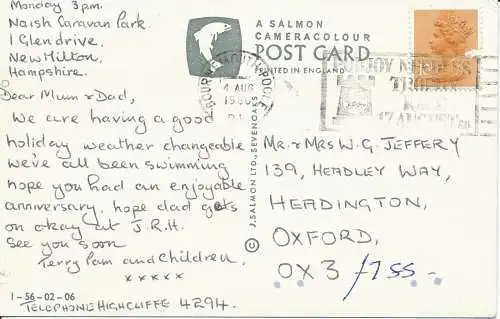 Monday 3pm.
Naish Caravan Park.
1 Glendrive,
New Milton,
Hampshire.
Dear Mum & Dad,
We are having a good
holiday weather changeable
we've all been swimming
hope you had an enjoyable
anniversary, hope dad gets
on okay at J.R.H.
See you soon
Terry Pam and Children.
x x x x x
1-56-02-06
TELEPHONE HIGHCLIFFE 4294.
A SALMON
CAMERACOLOUR
POST CARD
PRINTED IN ENGLAND
© J. SALMON LTD., SEVENOAKS
AUG
1980
Mr & Mrs W.G. JEFFERY
139, HEADLEY WAY,
HEADINGTON,
OXFORD,
OX3 7SS